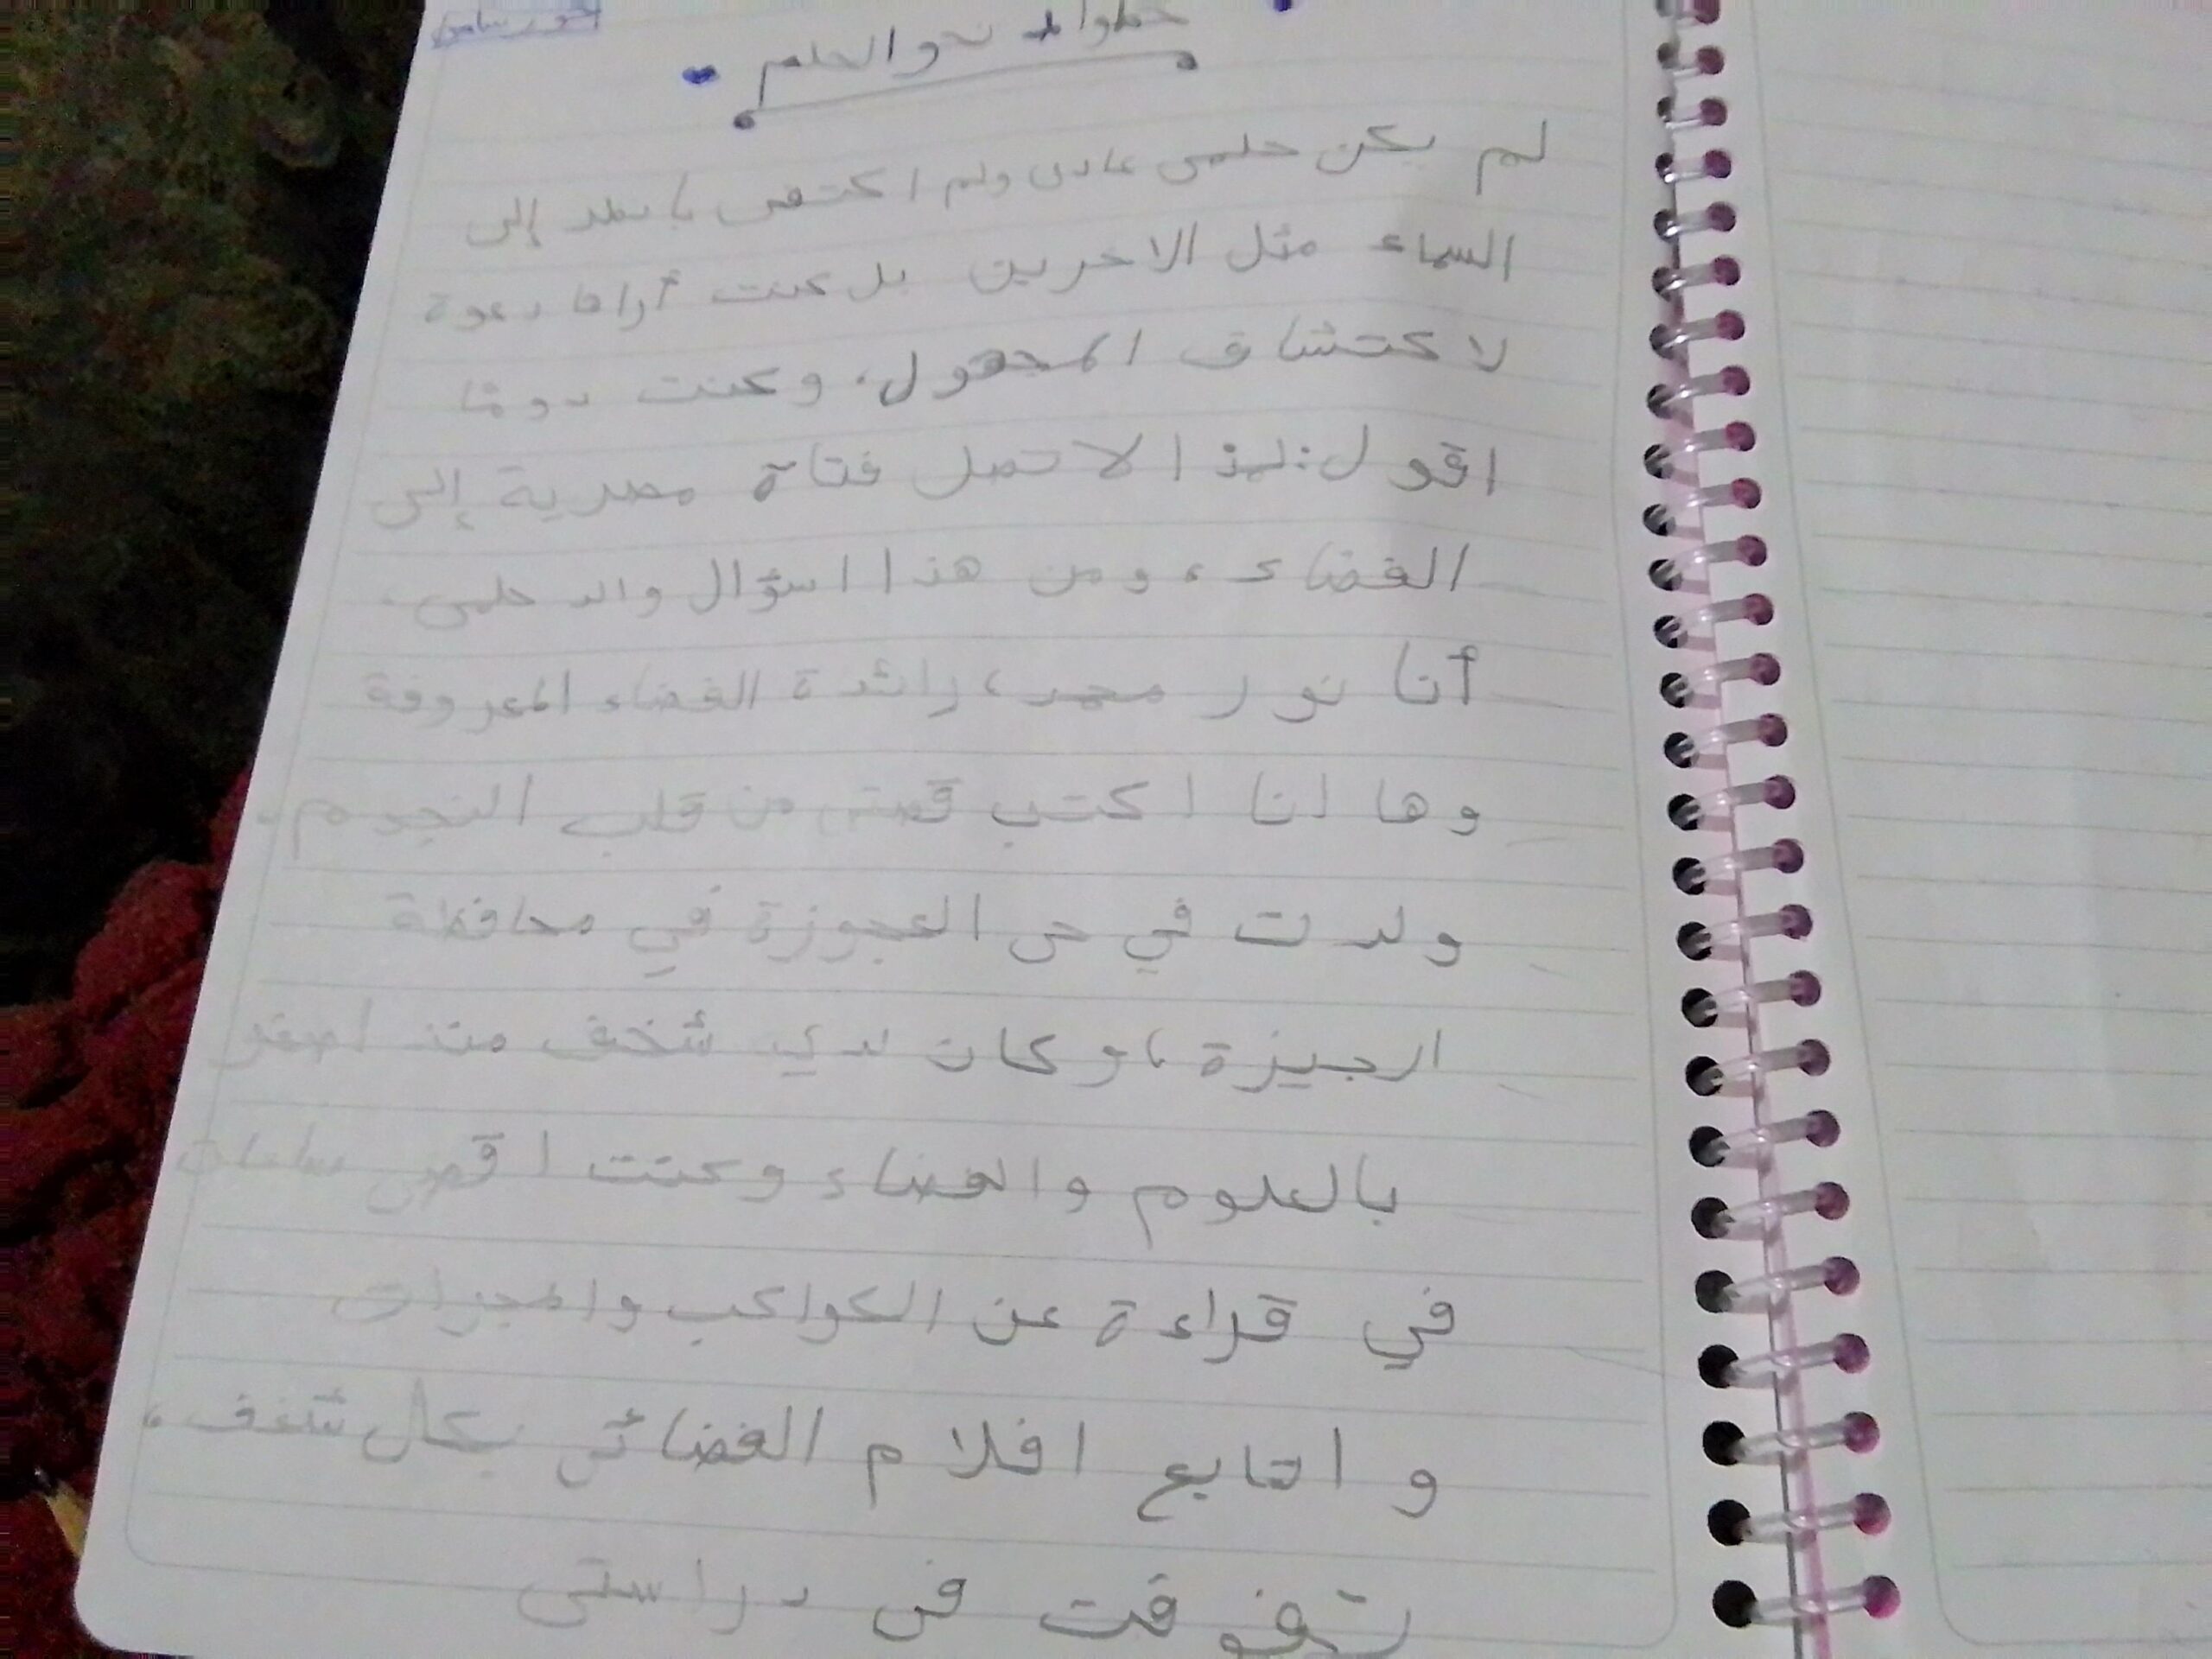 خطواط نحو الحلم
لم يكن حلمى عادى ولم اكتفى بانطر إلى
السماء مثل الاخرين بل كنت أراها دعوة
لاكتشاف المجهول. وكنت دومًا
اقول: لمذا لا تصل فتاة مصرية إلى
الفضاء، ومن هذا اسؤال والد حلمى.
أنا نور محمد، رائدة الفضاء المعروفة
وها انا اكتب قصتى من قلب النجوم.
ولدت في حى العجوزة في محافظة
ارجيزة، وكان لدي شخف منذ اصغر
بالعلوم والفضاء وكنت اقضى ساعات
في قراءة عن الكواكب والمجرات
واتابع افلام الفضائى بكل شغف،
تفوقت فى دراستى